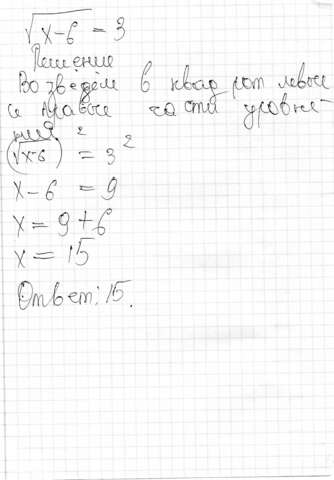 √x-6 = 3
Решение
Возведём в квадрат левые
и правые части уровне-
ния.
(√x-6)² = 3²
x-6 = 9
x = 9+6
x = 15
Ответ: 15.